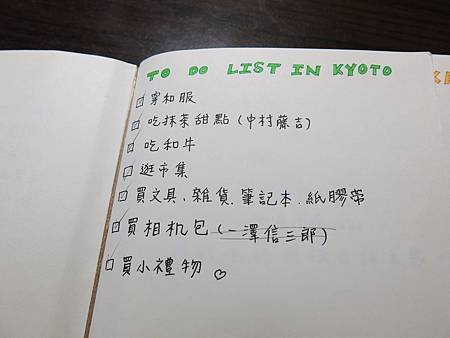 TO DO LIST IN KYOTO
□ 穿和服
□ 吃抹茶甜點(中村藤吉)
□ 吃和牛
□ 逛市集
□ 買文具、雜貨、筆記本、紙膠帶
□ 買相机包(一澤信三郎)
□ 買小禮物 ♡